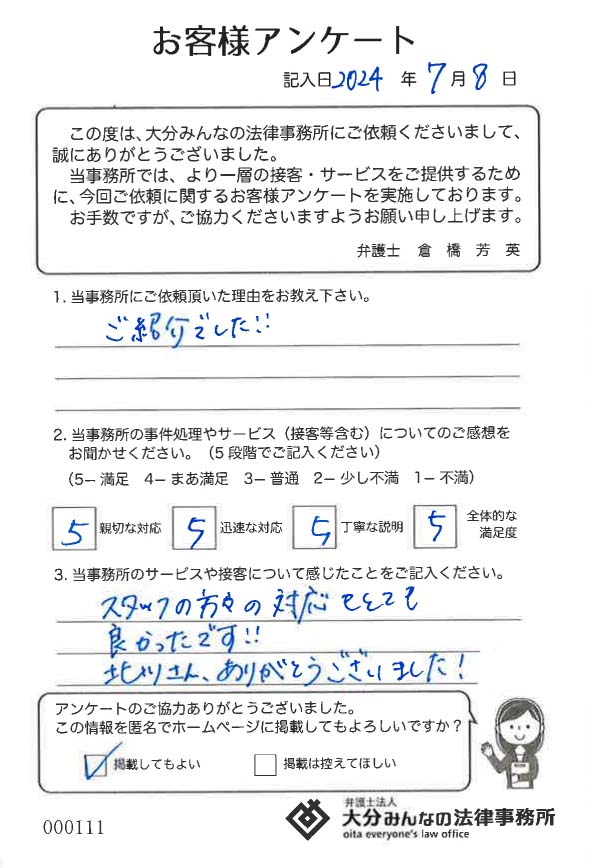 お客様アンケート
記入日2024年7月8日
この度は、大分みんなの法律事務所にご依頼くださいまして、
誠にありがとうございました。
当事務所では、より一層の接客・サービスをご提供するため
に、今回ご依頼に関するお客様アンケートを実施しております。
お手数ですが、ご協力くださいますようお願い申し上げます。
弁護士 倉橋芳英
1. 当事務所にご依頼頂いた理由をお教え下さい。
ご紹介でした!!
2. 当事務所の事件処理やサービス（接客等含む）についてのご感想を
お聞かせください。（5段階でご記入ください）
（5－満足 4－まあ満足 3－普通 2－少し不満 1－不満）
5 親切な対応 5 迅速な対応 5 丁寧な説明 5 全体的な
満足度
3. 当事務所のサービスや接客について感じたことをご記入ください。
スタッフの方々の対応もとても
良かったです!!
北川さん、ありがとうございました!
アンケートのご協力ありがとうございました。
この情報を匿名でホームページに掲載してもよろしいですか？
掲載してもよい 掲載は控えてほしい
000111
弁護士法人
大分みんなの法律事務所
oita everyone's law office